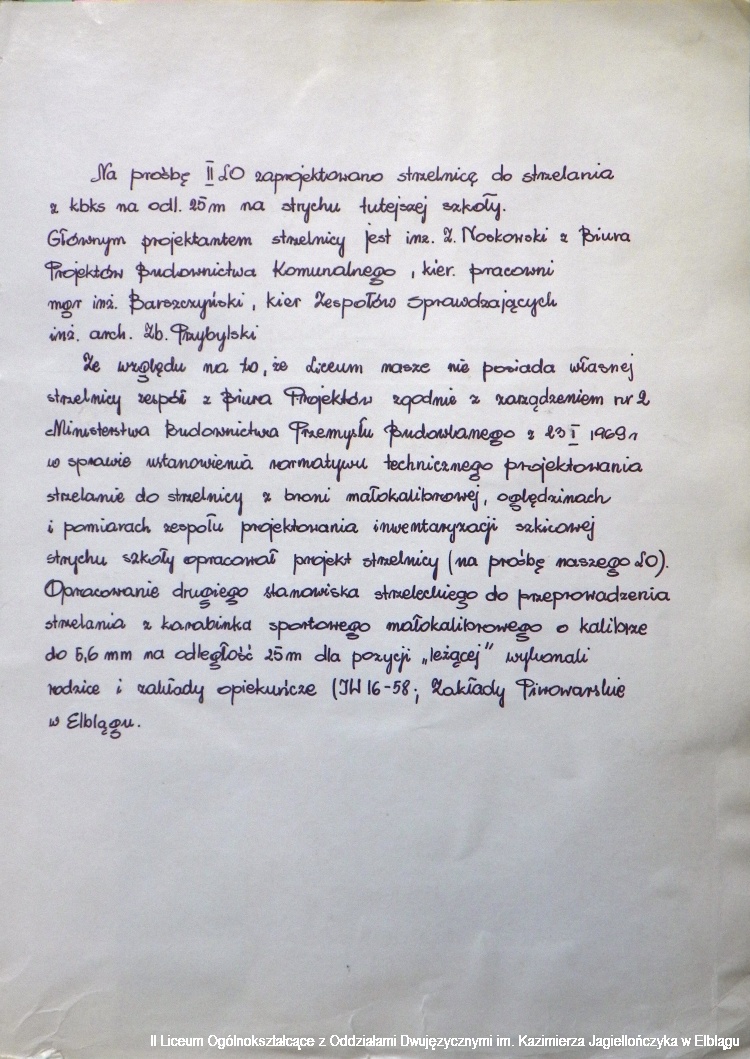 Na prośbę II LO zaprojektowano strzelnicę do strzelania
z kbks na odl. 25 m na strychu tutejszej szkoły.
Głównym projektantem strzelnicy jest inż. Z. Noskowski z Biura
Projektów Budownictwa Komunalnego, kier. pracowni
mgr inż. Barszczyński, kier Zespołów Sprawdzających
inż. arch. Zb. Przybylski
Ze względu na to, że Liceum nasze nie posiada własnej
strzelnicy zespół z Biura Projektów zgodnie z zarządzeniem nr 2
Ministerstwa Budownictwa Przemysłu Budowlanego z 23 I 1969 r
w sprawie ustanowienia normatywu technicznego projektowania
strzelanie do strzelnicy z broni małokalibrowej, oględzinach
i pomiarach zespołu projektowania inwentaryzacji szkicowej
strychu szkoły opracował projekt strzelnicy (na prośbę naszego LO).
Opracowanie drugiego stanowiska strzeleckiego do przeprowadzenia
strzelania z karabinka sportowego małokalibrowego o kalibrze
do 5,6 mm na odległość 25 m dla pozycji „leżącej" wykonali
rodzice i zakłady opiekuńcze (JW 16-58; Zakłady Piwowarskie
w Elblągu.
II Liceum Ogólnokształcące z Oddziałami Dwujęzycznymi im. Kazimierza Jagiellończyka w Elblągu